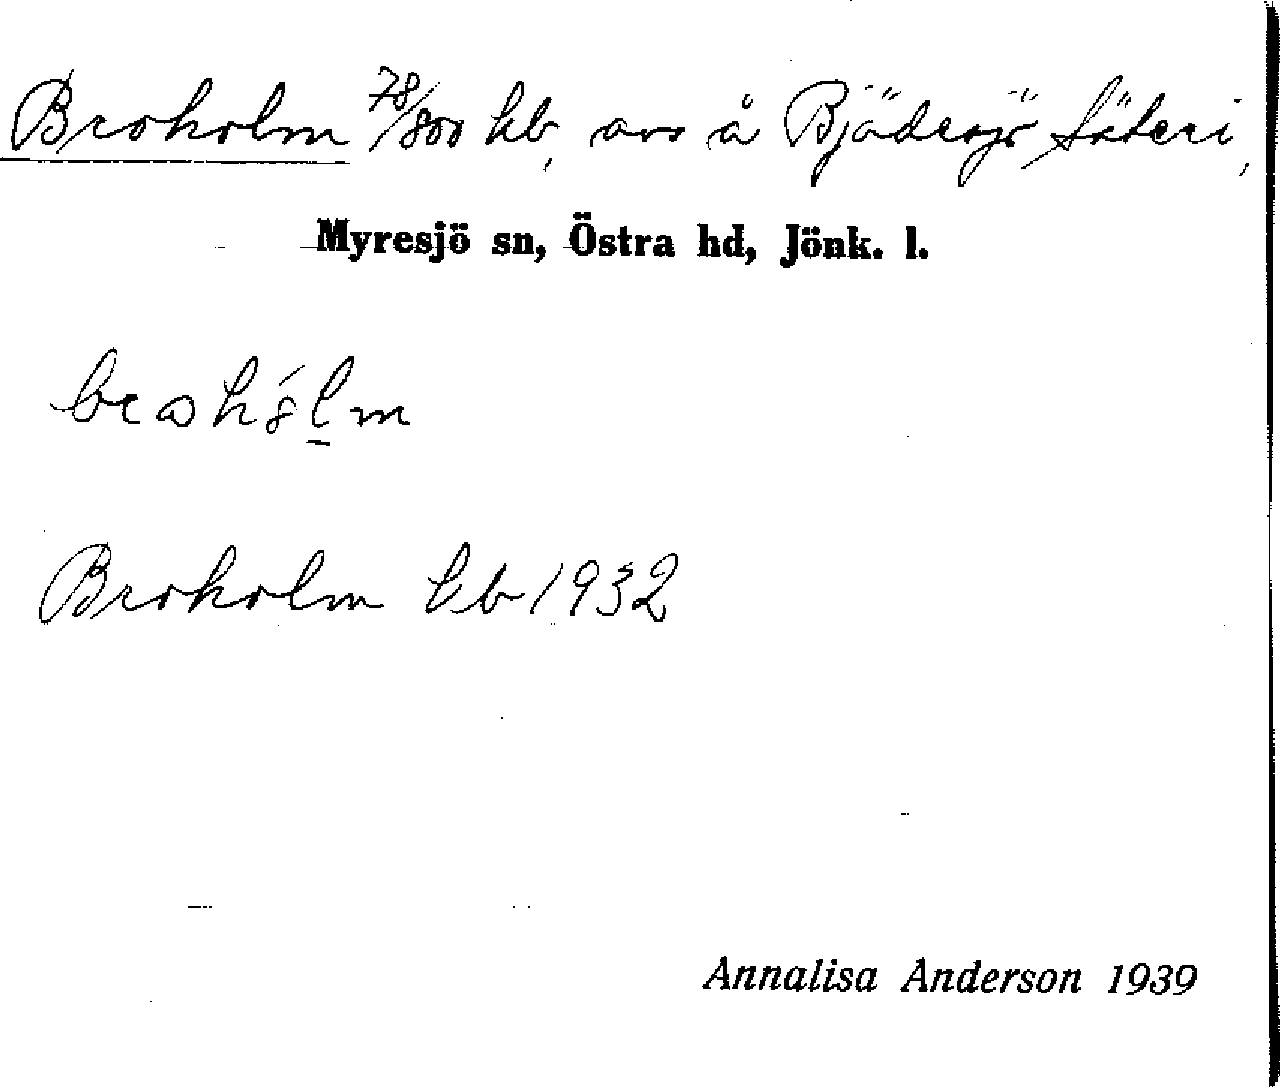 Broholm 78/800 hb, avs å Bjädesjö Säteri,
Myresjö sn, Östra hd, Jönk. l.
Broholm kb 1932
Annalisa Anderson 1939